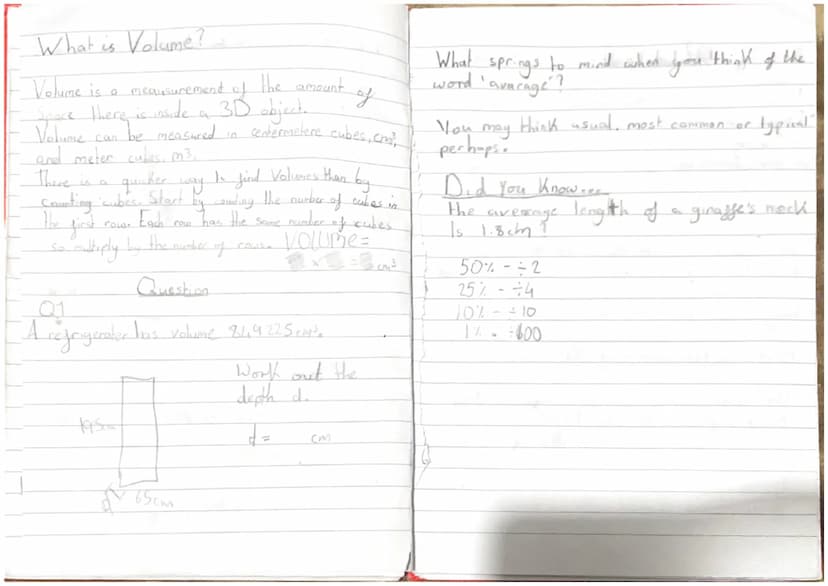 What is Volume?
Volume is a meausurement of the amount of
space there is inside a 3D object.
Volume can be measured in centermetere cubes, cm³,
and meter cubes, m³.
There is a quicker way to find Volumes than by
counting cubes. Start by counting the number of cubes in
the first row. Each row has the same number of cubes
so multiply by the number of rows. VOLUME=
× = cm³
Question
Q1
A refrigerater has volume cm³.
Work out the
depth d.
195cm
d= cm
d 65cm
What springs to mind when you think of the
word 'avarage'?
You may think usual, most common or typical
perhaps.
Did You Know...
the average length of a giraffe's neck
Is 1.8cm?
50% - ÷2
25% - ÷4
10% - ÷10
1% - ÷100